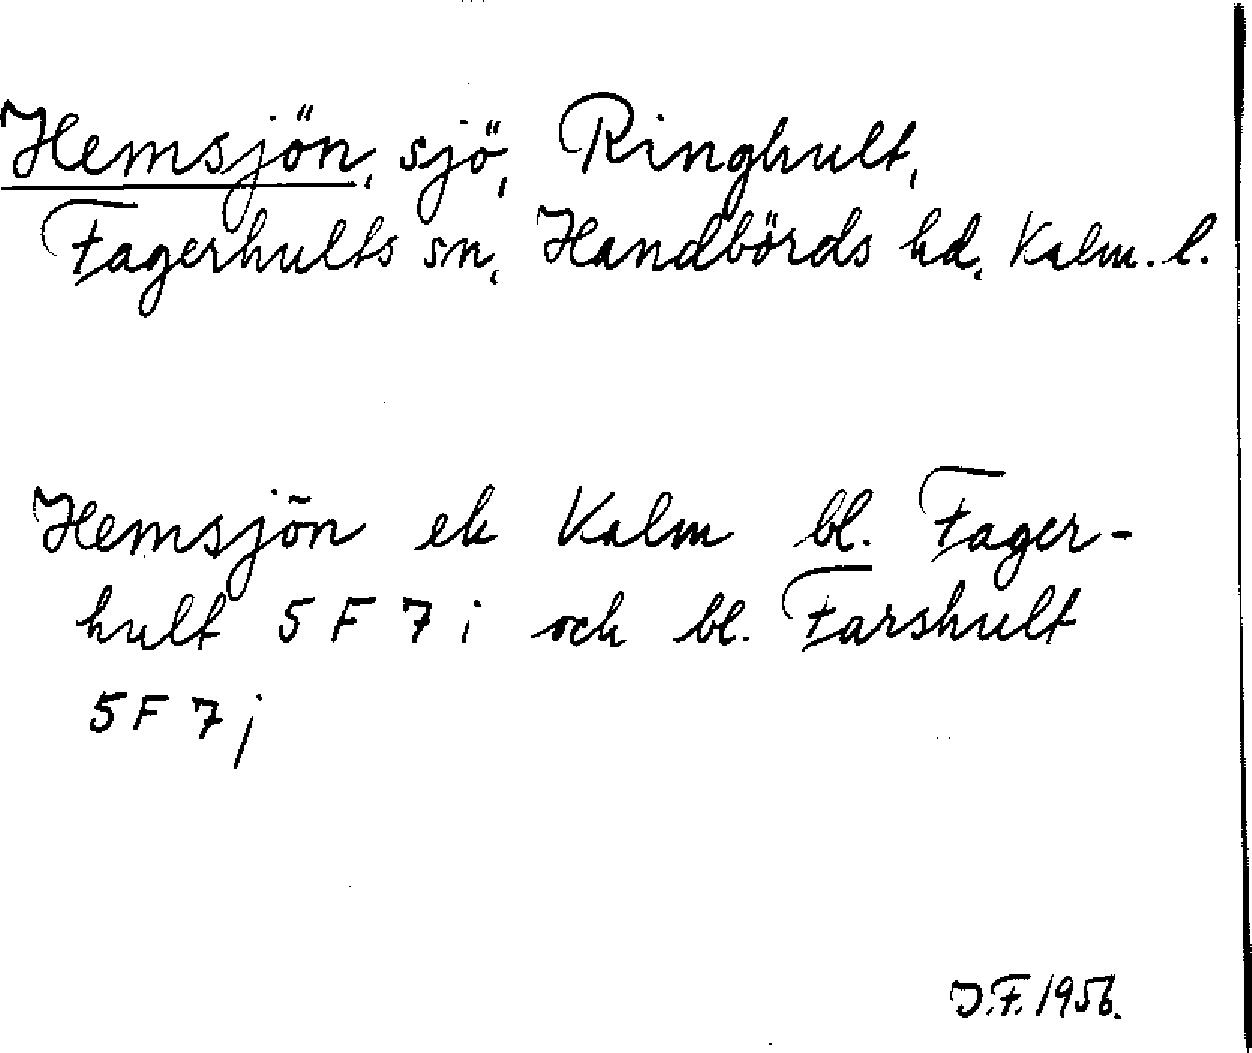 Hemsjön, sjö, Ringhult,
Fagerhults sn, Handbörds hd, Kalm. l.
Hemsjön ek Kalm bl. Fager-
hult 5 F 7 i och bl. Farshult
5 F 7 j
J.F. 1956.